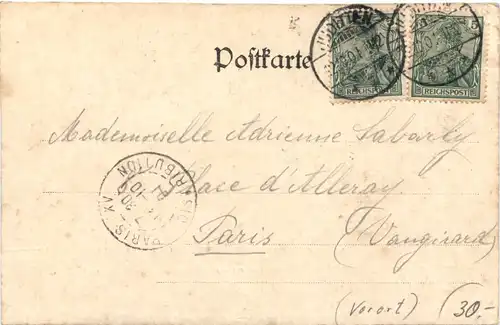 Postkarte
REICHSPOST
REICHSPOST
5
Mademoiselle Adrienne Sabarly
Place d'Alleray
Paris (Vaugirard)
PARIS XV
DISTRIBUTION
(Vorort)
30.-